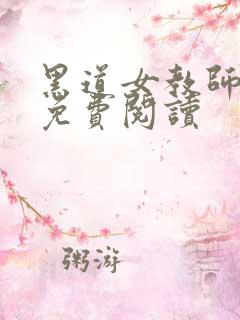 黑道女教師
免費閱讀
粥游